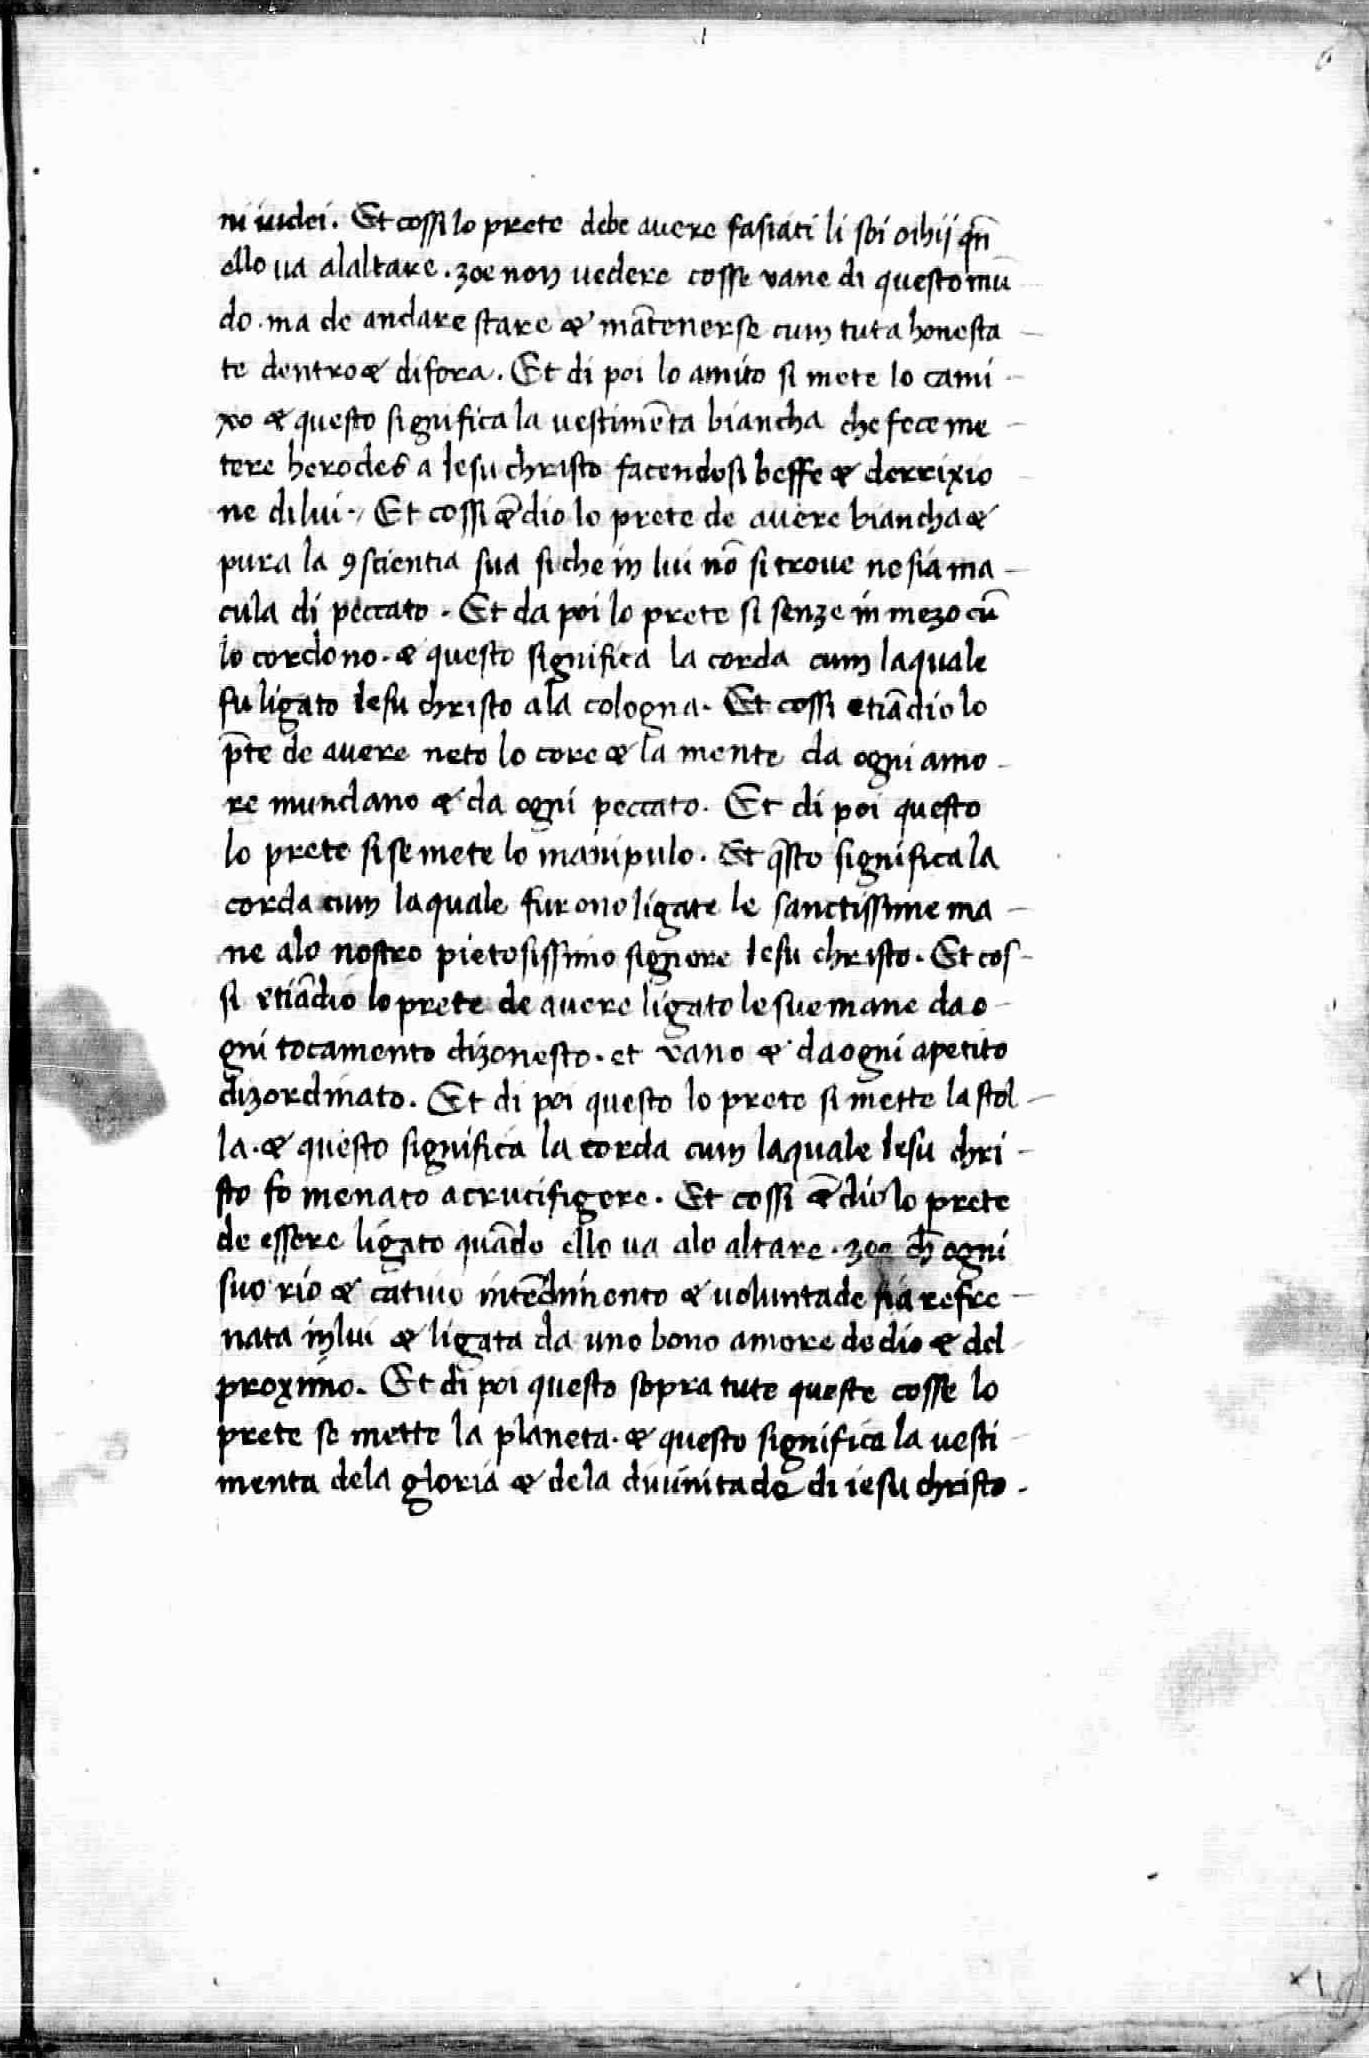 ni iudei. Et cossi lo prete debe auere fasiati li soi ochij qñ
ello ua alaltare. zoe non uedere cosse vane di questo mū
do. ma de andare stare & mātenerse cum tuta honesta
te dentro & di fora. Et di poi lo amito si mete lo cami
xo & questo significa la uestimēta biancha che fece me
tere herodes a Iesu christo facendosi beffe & derrixio
ne di lui. Et cossi &̄dio lo prete de auere biancha &
pura la ꝯscientia sua si che in lui nō si troue ne sia ma
cula di peccato. Et da poi lo prete si senze in mezo cū
lo cordono. & questo significa la corda cum laquale
fu ligato Iesu christo ala cologna. Et cossi etiādio lo
p̄te de auere neto lo core & la mente da ogni amo
re mundano & da ogni peccato. Et di poi questo
lo prete si se mete lo manipulo. Et q̄sto significa la
corda cum laquale furono ligate le sanctissime ma
ne alo nostro pietosissimo signore Iesu christo. Et cos
si etiādio lo prete de auere ligato le sue mane da o
gni tocamento dizonesto. et vano & da ogni apetito
dizordinato. Et di poi questo lo prete si mette la stol
la. & questo significa la corda cum laquale Iesu chri
sto fo menato a crucifigere. Et cossi &̄dio lo prete
de essere ligato quādo ello ua alo altare. zoe ch̄ ogni
suo rio & catiuo intēdimento & uoluntade sia refre
nata in lui & ligata da uno bono amore de dio & del
proximo. Et di poi questo sopra tute queste cosse lo
prete se mette la planeta. & questo significa la uesti
menta dela gloria & dela diuinitade di iesu christo.